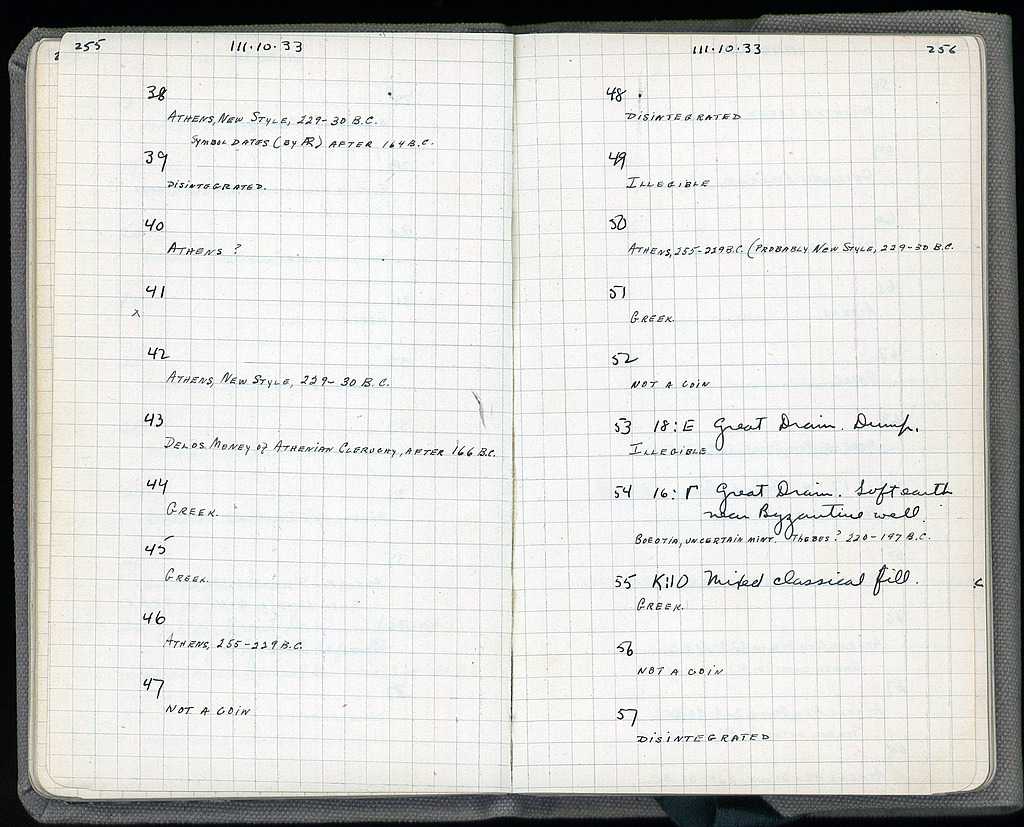 255 111·10·33
38
ATHENS, NEW STYLE, 229-30 B.C.
SYMBOL DATES (BY ÆR) AFTER 164 B.C.
39
DISINTEGRATED.
40
ATHENS ?
41
x
42
ATHENS, NEW STYLE, 229-30 B.C.
43
DELOS. MONEY of ATHENIAN CLERUCHY, AFTER 166 B.C.
44
GREEK.
45
GREEK.
46
ATHENS, 255-229 B.C.
47
NOT A COIN
111·10·33 256
48
DISINTEGRATED
49
ILLEGIBLE
50
ATHENS, 255-229 B.C. (PROBABLY NEW STYLE, 229-30 B.C.
51
GREEK.
52
NOT A COIN
53 18:E Great Drain. Dump.
ILLEGIBLE
54 16:Γ Great Drain. Soft earth
near Byzantine well.
BOEOTIA, UNCERTAIN MINT. THEBES? 220-197 B.C.
55 K:10 Mixed classical fill.
GREEK.
56
NOT A COIN
57
DISINTEGRATED